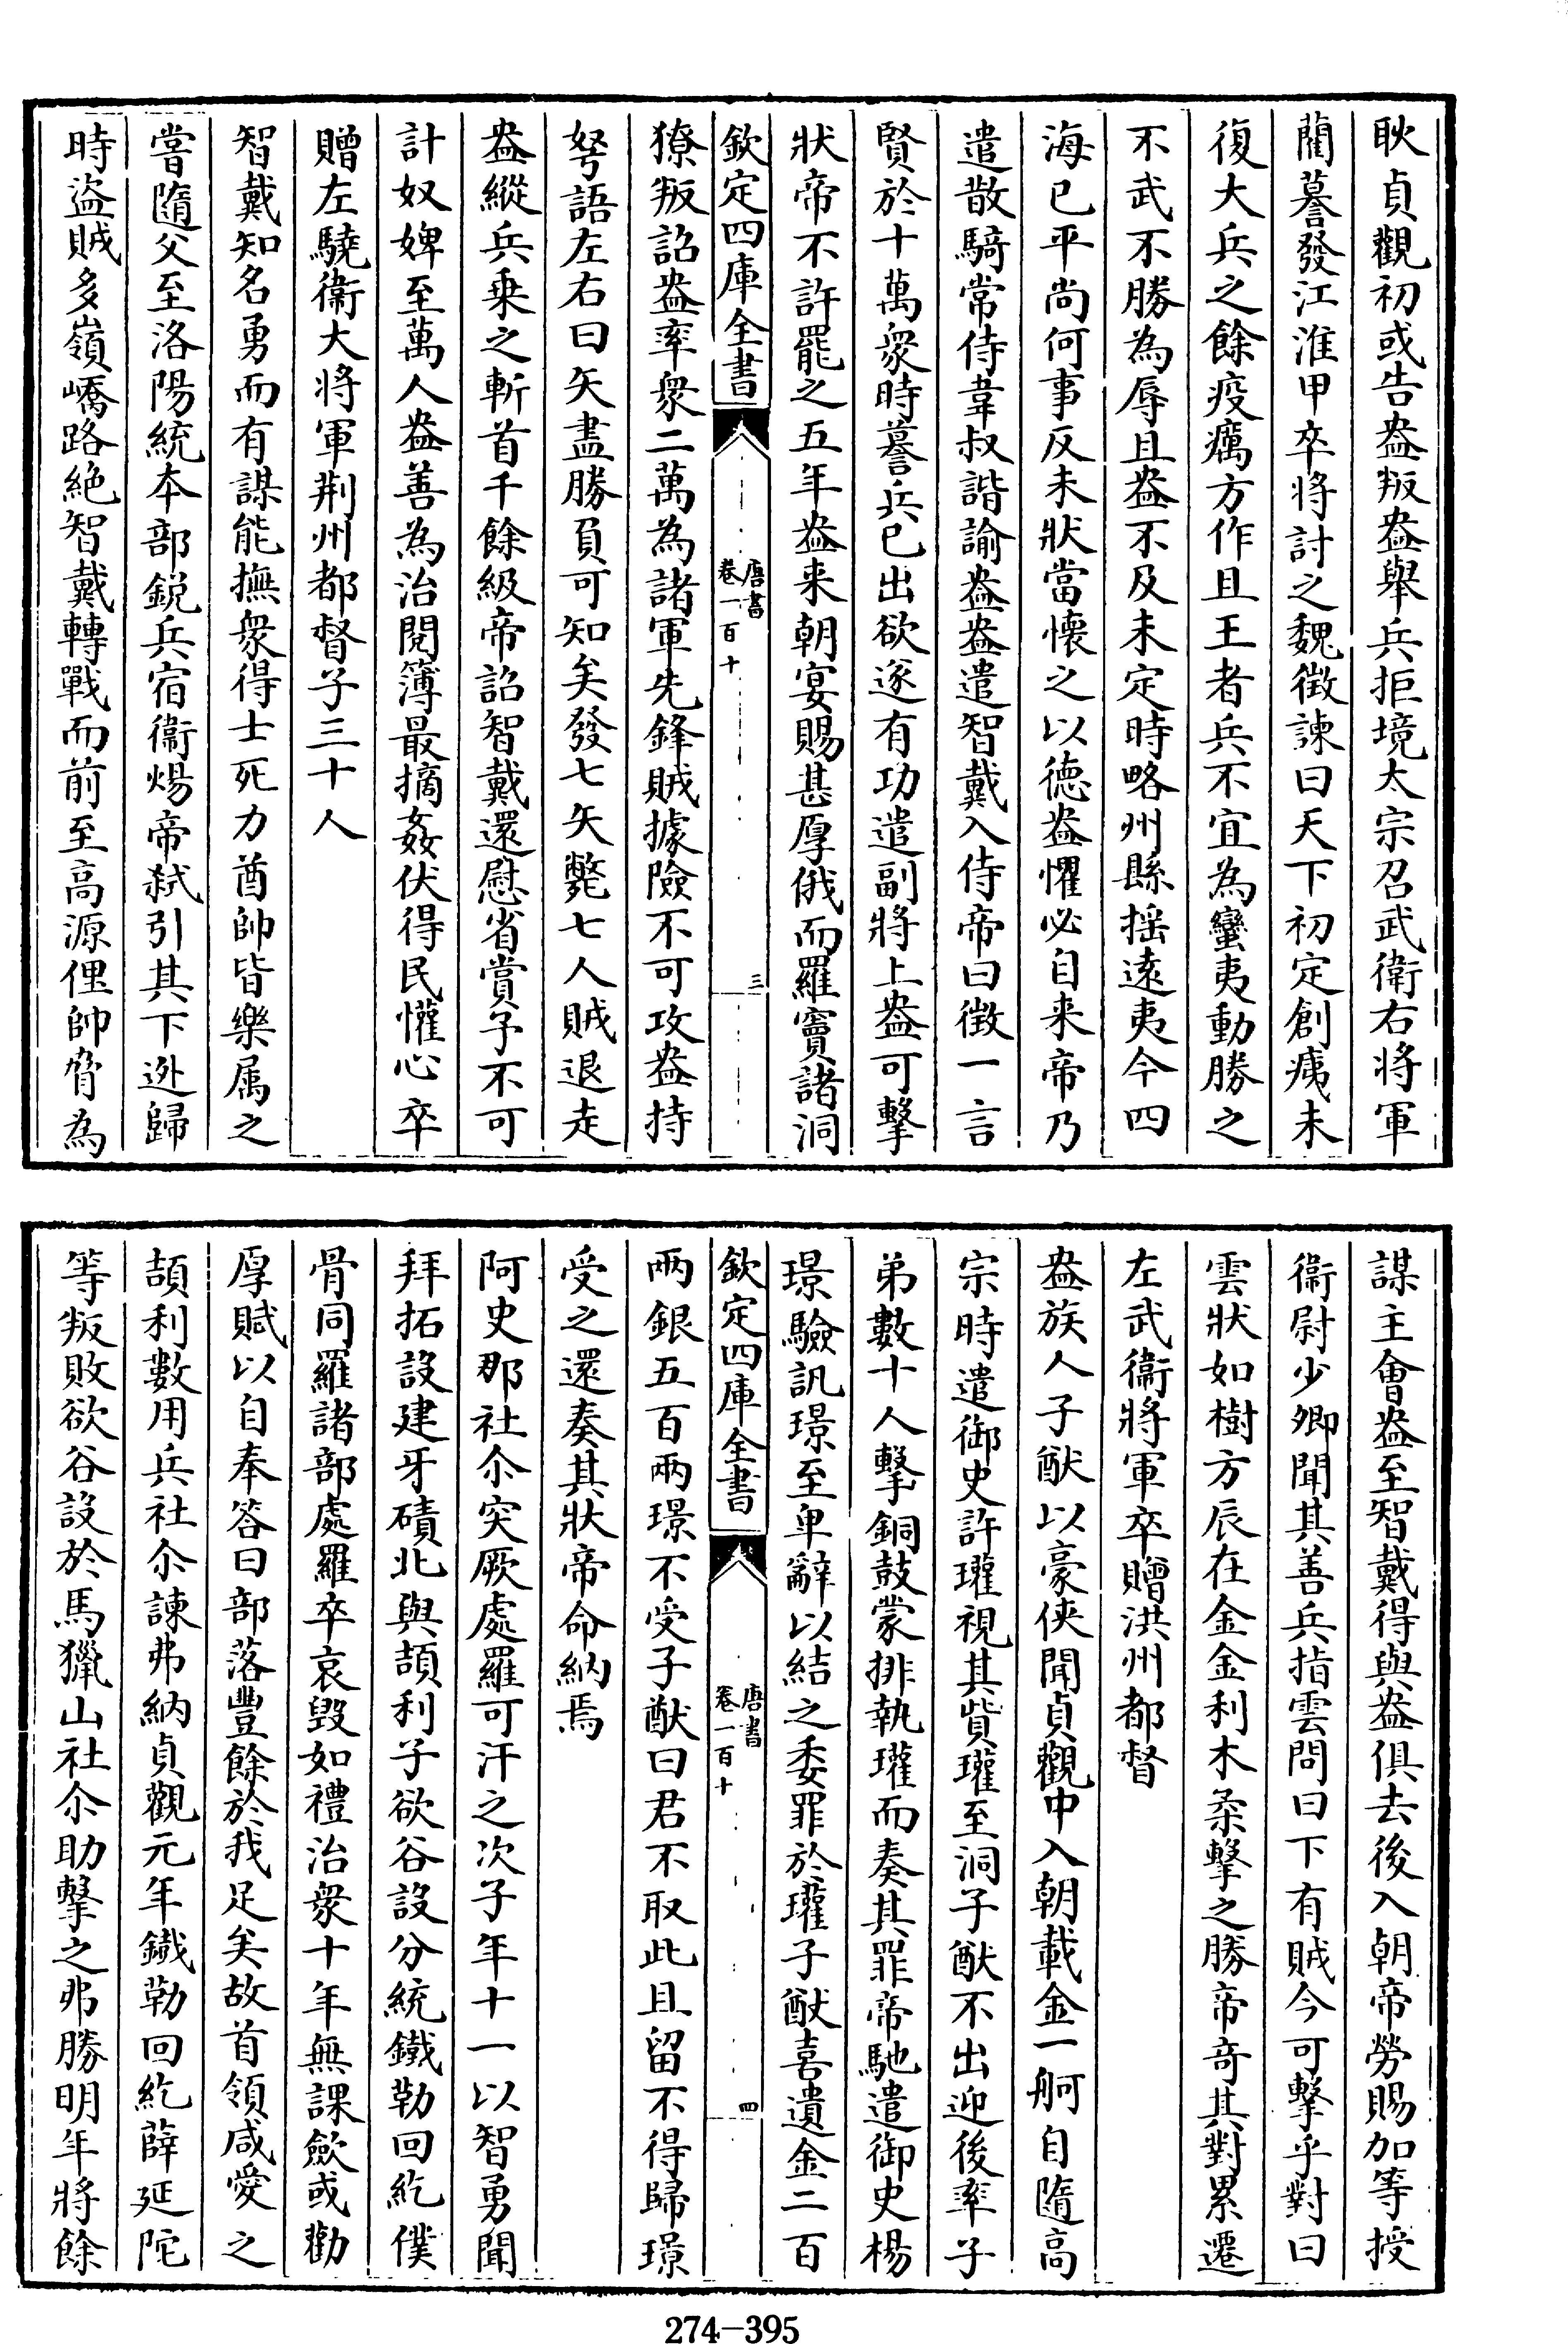 耿貞觀初或告盎叛盎舉兵拒境太宗召武衛右將軍
藺謩發江淮甲卒將討之魏徵諫曰天下初定創痍未
復大兵之餘疫癘方作且王者兵不宜為蠻夷動勝之
不武不勝為辱且盎不及未定時略州縣揺逺夷今四
海已平尚何事反未狀當懷之以德盎懼必自来帝乃
遣散騎常侍韋叔諧諭盎盎遣智戴入侍帝曰徴一言
賢於十萬衆時謩兵已出欲逐有功遣副將上盎可擊
狀帝不許罷之五年盎来朝宴賜甚厚俄而羅竇諸洞
欽定四庫全書
唐書
卷一百十
三
獠叛詔盎率衆二萬為諸軍先鋒賊據險不可攻盎持
弩語左右曰矢盡勝負可知矣發七矢斃七人賊退走
盎縱兵乗之斬首千餘級帝詔智戴還慰省賞予不可
計奴婢至萬人盎善為治閱簿最摘姦伏得民懽心卒
贈左驍衛大將軍荆州都督子三十人
智戴知名勇而有謀能撫衆得士死力酋帥皆樂属之
嘗隨父至洛陽統本部鋭兵宿衛煬帝弑引其下逃歸
時盜賊多嶺嶠路絶智戴轉戰而前至高源俚帥脅為
謀主會盎至智戴得與盎俱去後入朝帝勞賜加等授
衞尉少卿聞其善兵指雲問曰下有賊今可擊乎對曰
雲狀如樹方辰在金金利木柔擊之勝帝奇其對累遷
左武衛將軍卒贈洪州都督
盎族人子猷以豪俠聞貞觀中入朝載金一舸自隨高
宗時遣御史許瓘視其貲瓘至洞子猷不出迎後率子
弟數十人擊銅鼓蒙排執瓘而奏其罪帝馳遣御史楊
璟驗訊璟至卑辭以結之委罪於瓘子猷喜遺金二百
欽定四庫全書
唐書
卷一百十
四
兩銀五百兩璟不受子猷曰君不取此且留不得歸璟
受之還奏其狀帝命納焉
阿史那社尒突厥處羅可汗之次子年十一以智勇聞
拜拓設建牙磧北與頡利子欲谷設分統鐵勒回紇僕
骨同羅諸部處羅卒哀毁如禮治衆十年無課歛或勸
厚賦以自奉答曰部落豐餘於我足矣故首領咸愛之
頡利數用兵社尒諫弗納貞觀元年鐡勒回紇薛延陀
等叛敗欲谷設於馬獵山社尒助擊之弗勝明年將餘
274-395